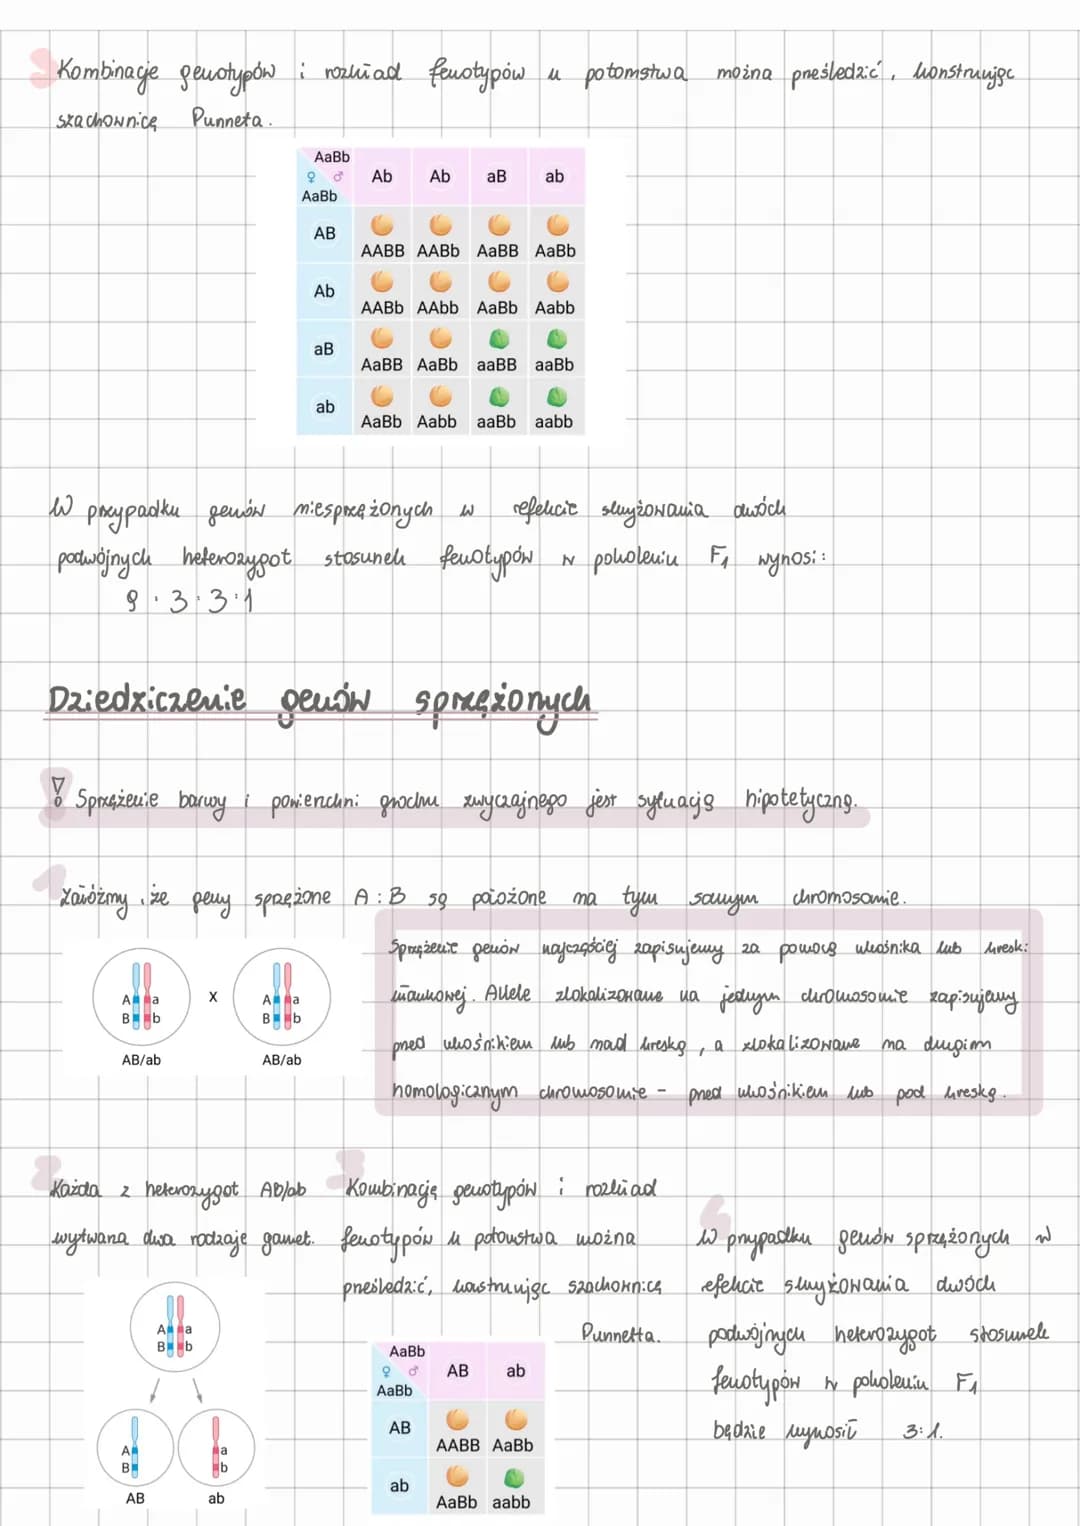 3 Kombinacje genotypów i rozkład fenotypów u potomstwa można prześledzić, konstruując
szachownicę Punneta.
AaBb
♀ ♂ Ab Ab aB ab
AaBb
AB
AABB AABb AaBB AaBb
Ab
AABb AAbb AaBb Aabb
aB
AaBB AaBb aaBB aaBb
ab
AaBb Aabb aaBb aabb
W przypadku genów niesprzężonych w efekcie skrzyżowania dwóch
podwójnych heterozygot stosunek fenotypów w pokoleniu F1 wynosi:
9:3:3:1
Dziedziczenie genów sprzężonych
! Sprzężenie barwy i powierzchni grochu zwyczajnego jest sytuacją hipotetyczną.
1 Załóżmy, że geny sprzężone A i B są położone na tym samym chromosomie.
A a
B b
AB/ab
x
A a
B b
AB/ab
Sprzężenie genów najczęściej zapisujemy za pomocą ukośnika lub kreski
ułamkowej. Allele zlokalizowane na jednym chromosomie zapisujemy
przed ukośnikiem lub nad kreską, a zlokalizowane na drugim
homologicznym chromosomie - przed ukośnikiem lub pod kreską.
2 Każda z heterozygot AB/ab
wytwarza dwa rodzaje gamet.
A a
B b
A
B
AB
a
b
ab
3 Kombinację genotypów i rozkład
fenotypów u potomstwa można
prześledzić, konstruując szachownicę
Punnetta.
AaBb
♀ ♂ AB ab
AaBb
AB
AABB AaBb
ab
AaBb aabb
W przypadku genów sprzężonych w
efekcie skrzyżowania dwóch
podwójnych heterozygot stosunek
fenotypów w pokoleniu F1
będzie wynosił 3:1.